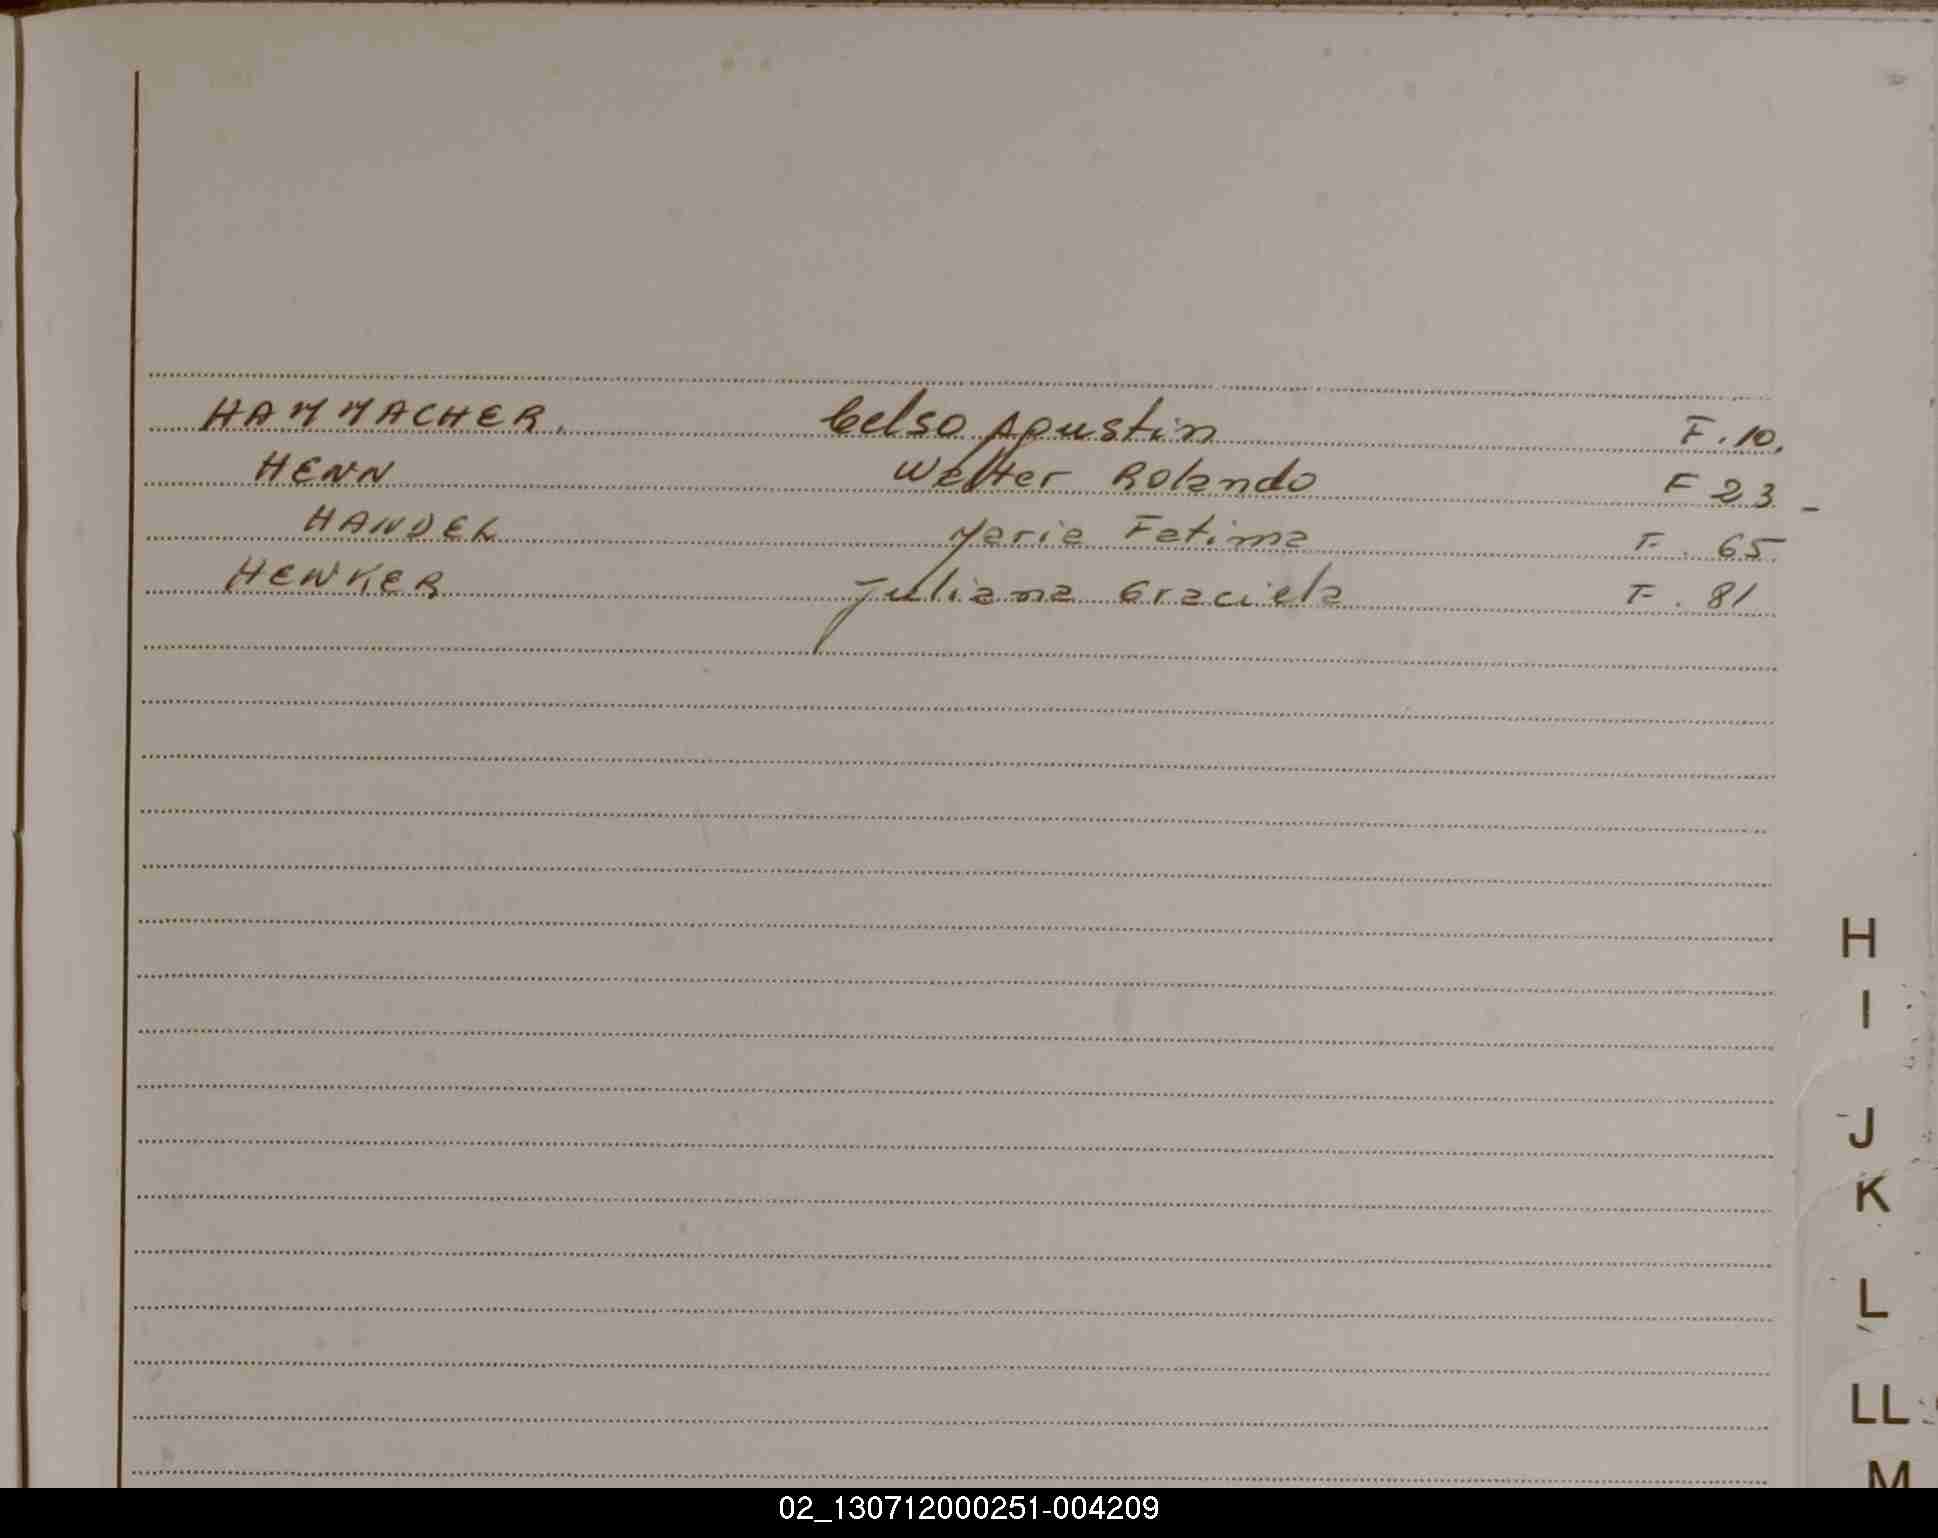 HAMMACHER. Celso Agustin F. 10.
HENN Walter Rolando F 23 -
HANDEL Maria Fatima F. 65.
HENKER Juliana Graciela F. 81
H
I
J
K
L
LL
M
02_130712000251-004209